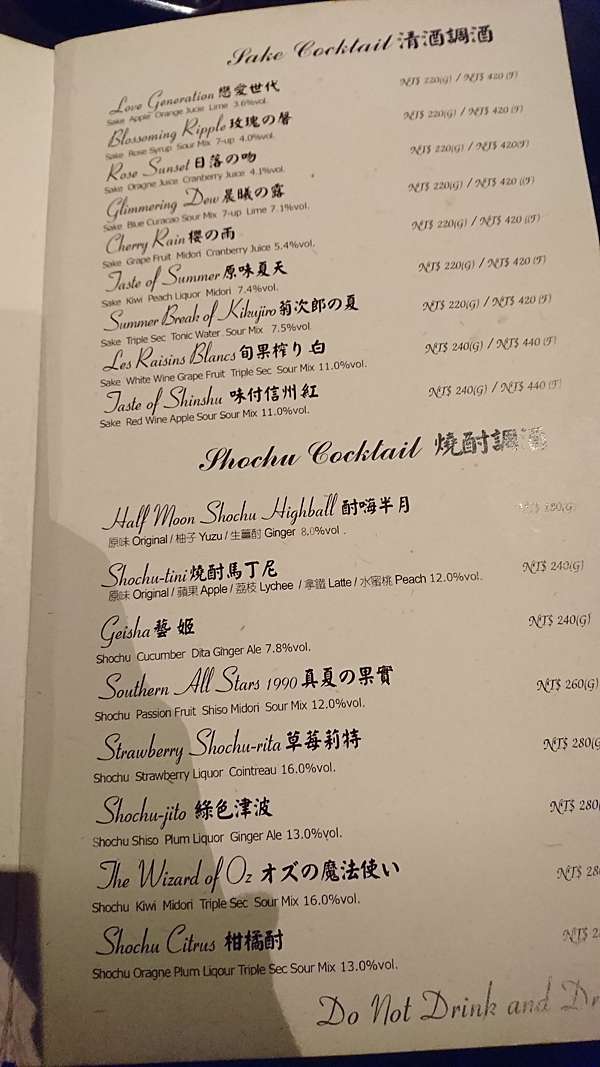 Sake Cocktail 清酒調酒
Love Generation 戀愛世代 NT$ 220(G) / NT$ 420 (F)
Sake Apple Orange Jucie Lime 3.6%vol.
Blossoming Ripple 玫瑰の馨 NT$ 220(G) / NT$ 420 (F)
Sake Rose Syrup Sour Mix 7-up 4.0%vol.
Rose Sunset 日落の吻 NT$ 220(G) / NT$ 420(F)
Sake Oragne Juice Cranberry Juice 4.1%vol.
Glimmering Dew 晨曦の露 NT$ 220(G) / NT$ 420 ((F)
Sake Blue Curacao Sour Mix 7-up Lime 7.1%vol.
Cherry Rain 櫻の雨 NT$ 220(G) / NT$ 420 ((F)
Sake Grape Fruit Midori Cranberry Juice 5.4%vol.
Taste of Summer 原味夏天 NT$ 220(G) / NT$ 420 (F)
Sake Kiwi Peach Liquor Midori 7.4%vol.
Summer Break of Kikujiro 菊次郎の夏 NT$ 220(G) / NT$ 420 (F)
Sake Triple Sec Tonic Water Sour Mix 7.5%vol
Les Raisins Blancs 旬果榨り白 NT$ 240(G) / NT$ 440 (F)
Sake White Wine Grape Fruit Triple Sec Sour Mix 11.0%vol.
Taste of Shinshu 味付信州紅 NT$ 240(G) / NT$ 440 (F)
Sake Red Wine Apple Sour Sour Mix 11.0%vol.
Shochu Cocktail 燒酎調酒
Half Moon Shochu Highball 酎嗨半月 NT$ 180(G)
原味 Original / 柚子 Yuzu / 生薑酎 Ginger 8.0%vol .
Shochu-tini 燒酎馬丁尼 NT$ 240(G)
原味 Original / 蘋果 Apple / 荔枝 Lychee / 拿鐵 Latte / 水蜜桃 Peach 12.0%vol.
Geisha 藝姬 NT$ 240(G)
Shochu Cucumber Dita Ginger Ale 7.8%vol.
Southern All Stars 1990 真夏の果實 NT$ 260(G)
Shochu Passion Fruit Shiso Midori Sour Mix 12.0%vol.
Strawberry Shochu-rita 草莓莉特 NT$ 280(G
Shochu Strawberry Liquor Cointreau 16.0%vol.
Shochu-jito 綠色津波 NT$ 280(
Shochu Shiso Plum Liquor Ginger Ale 13.0%vol.
The Wizard of Oz オズの魔法使い NT$ 28
Shochu Kiwi Midori Triple Sec Sour Mix 16.0%vol.
Shochu Citrus 柑橘酎 NT$ 2
Shochu Oragne Plum Liqour Triple Sec Sour Mix 13.0%vol.
Do Not Drink and Dr